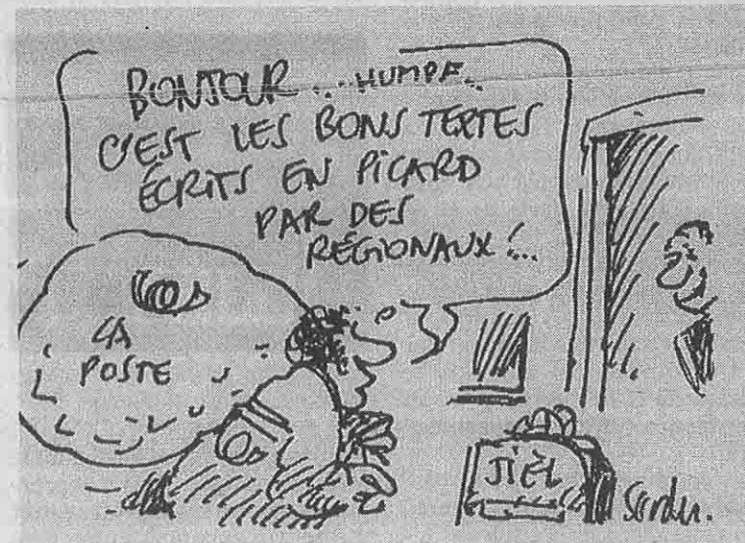 BONJOUR... HUMPF..
C'EST LES BONS TEXTES
ÉCRITS EN PICARD
PAR DES
RÉGIONAUX !...
LA
POSTE
JIÈL